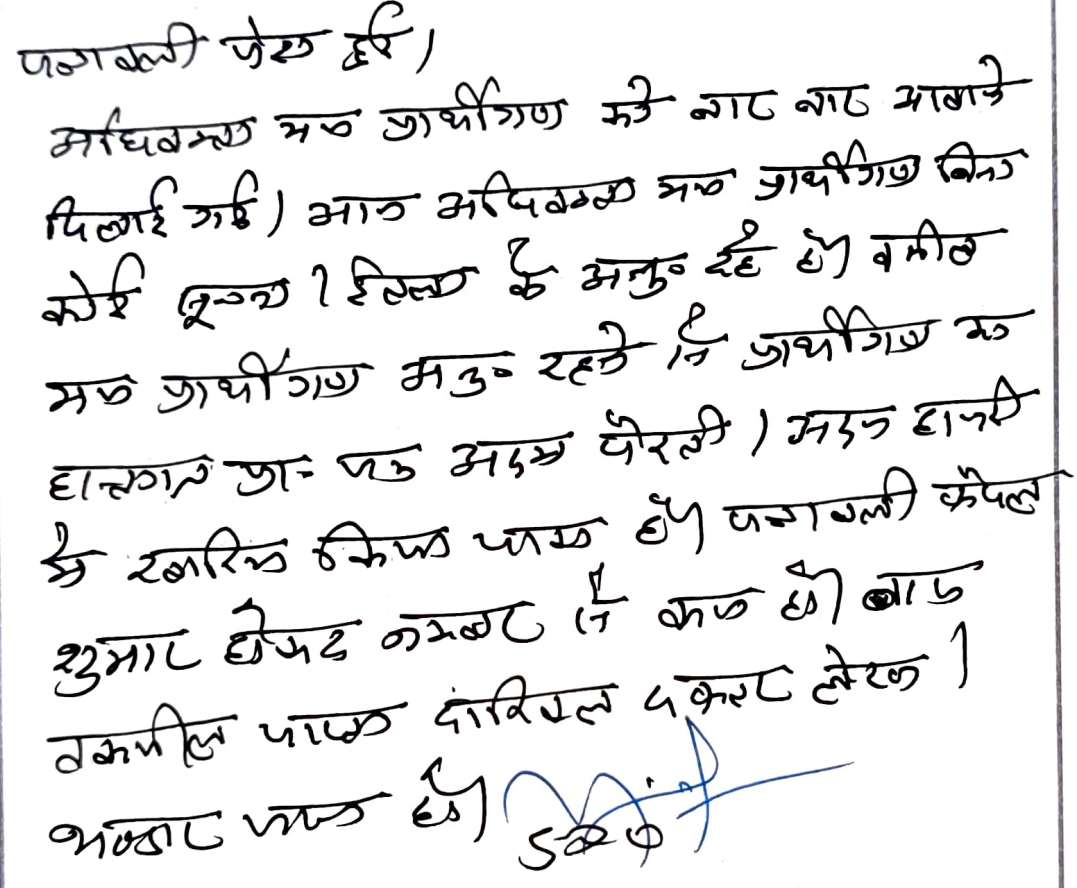 पत्रावली पेश हुई।
अधिवक्ता मय प्रार्थीगण को बार बार आवाजे
दिलाई गई। आज अधिवक्ता मय प्रार्थीगण बिना
कोई सूचना / इत्तला के अनु० रहे है। वकील
मय प्रार्थीगण अनु० रहने से प्रार्थीगण का
हालगत प्रा० पत्र अदम पैरवी / अदम हाजरी
मे खारिज किया जाता है। पत्रावली फैसल
शुमार होकर नम्बर से कम हो। बाद
तकमील जाप्ता दाखिल दफ्तर होवे।
जाता है।
SDO